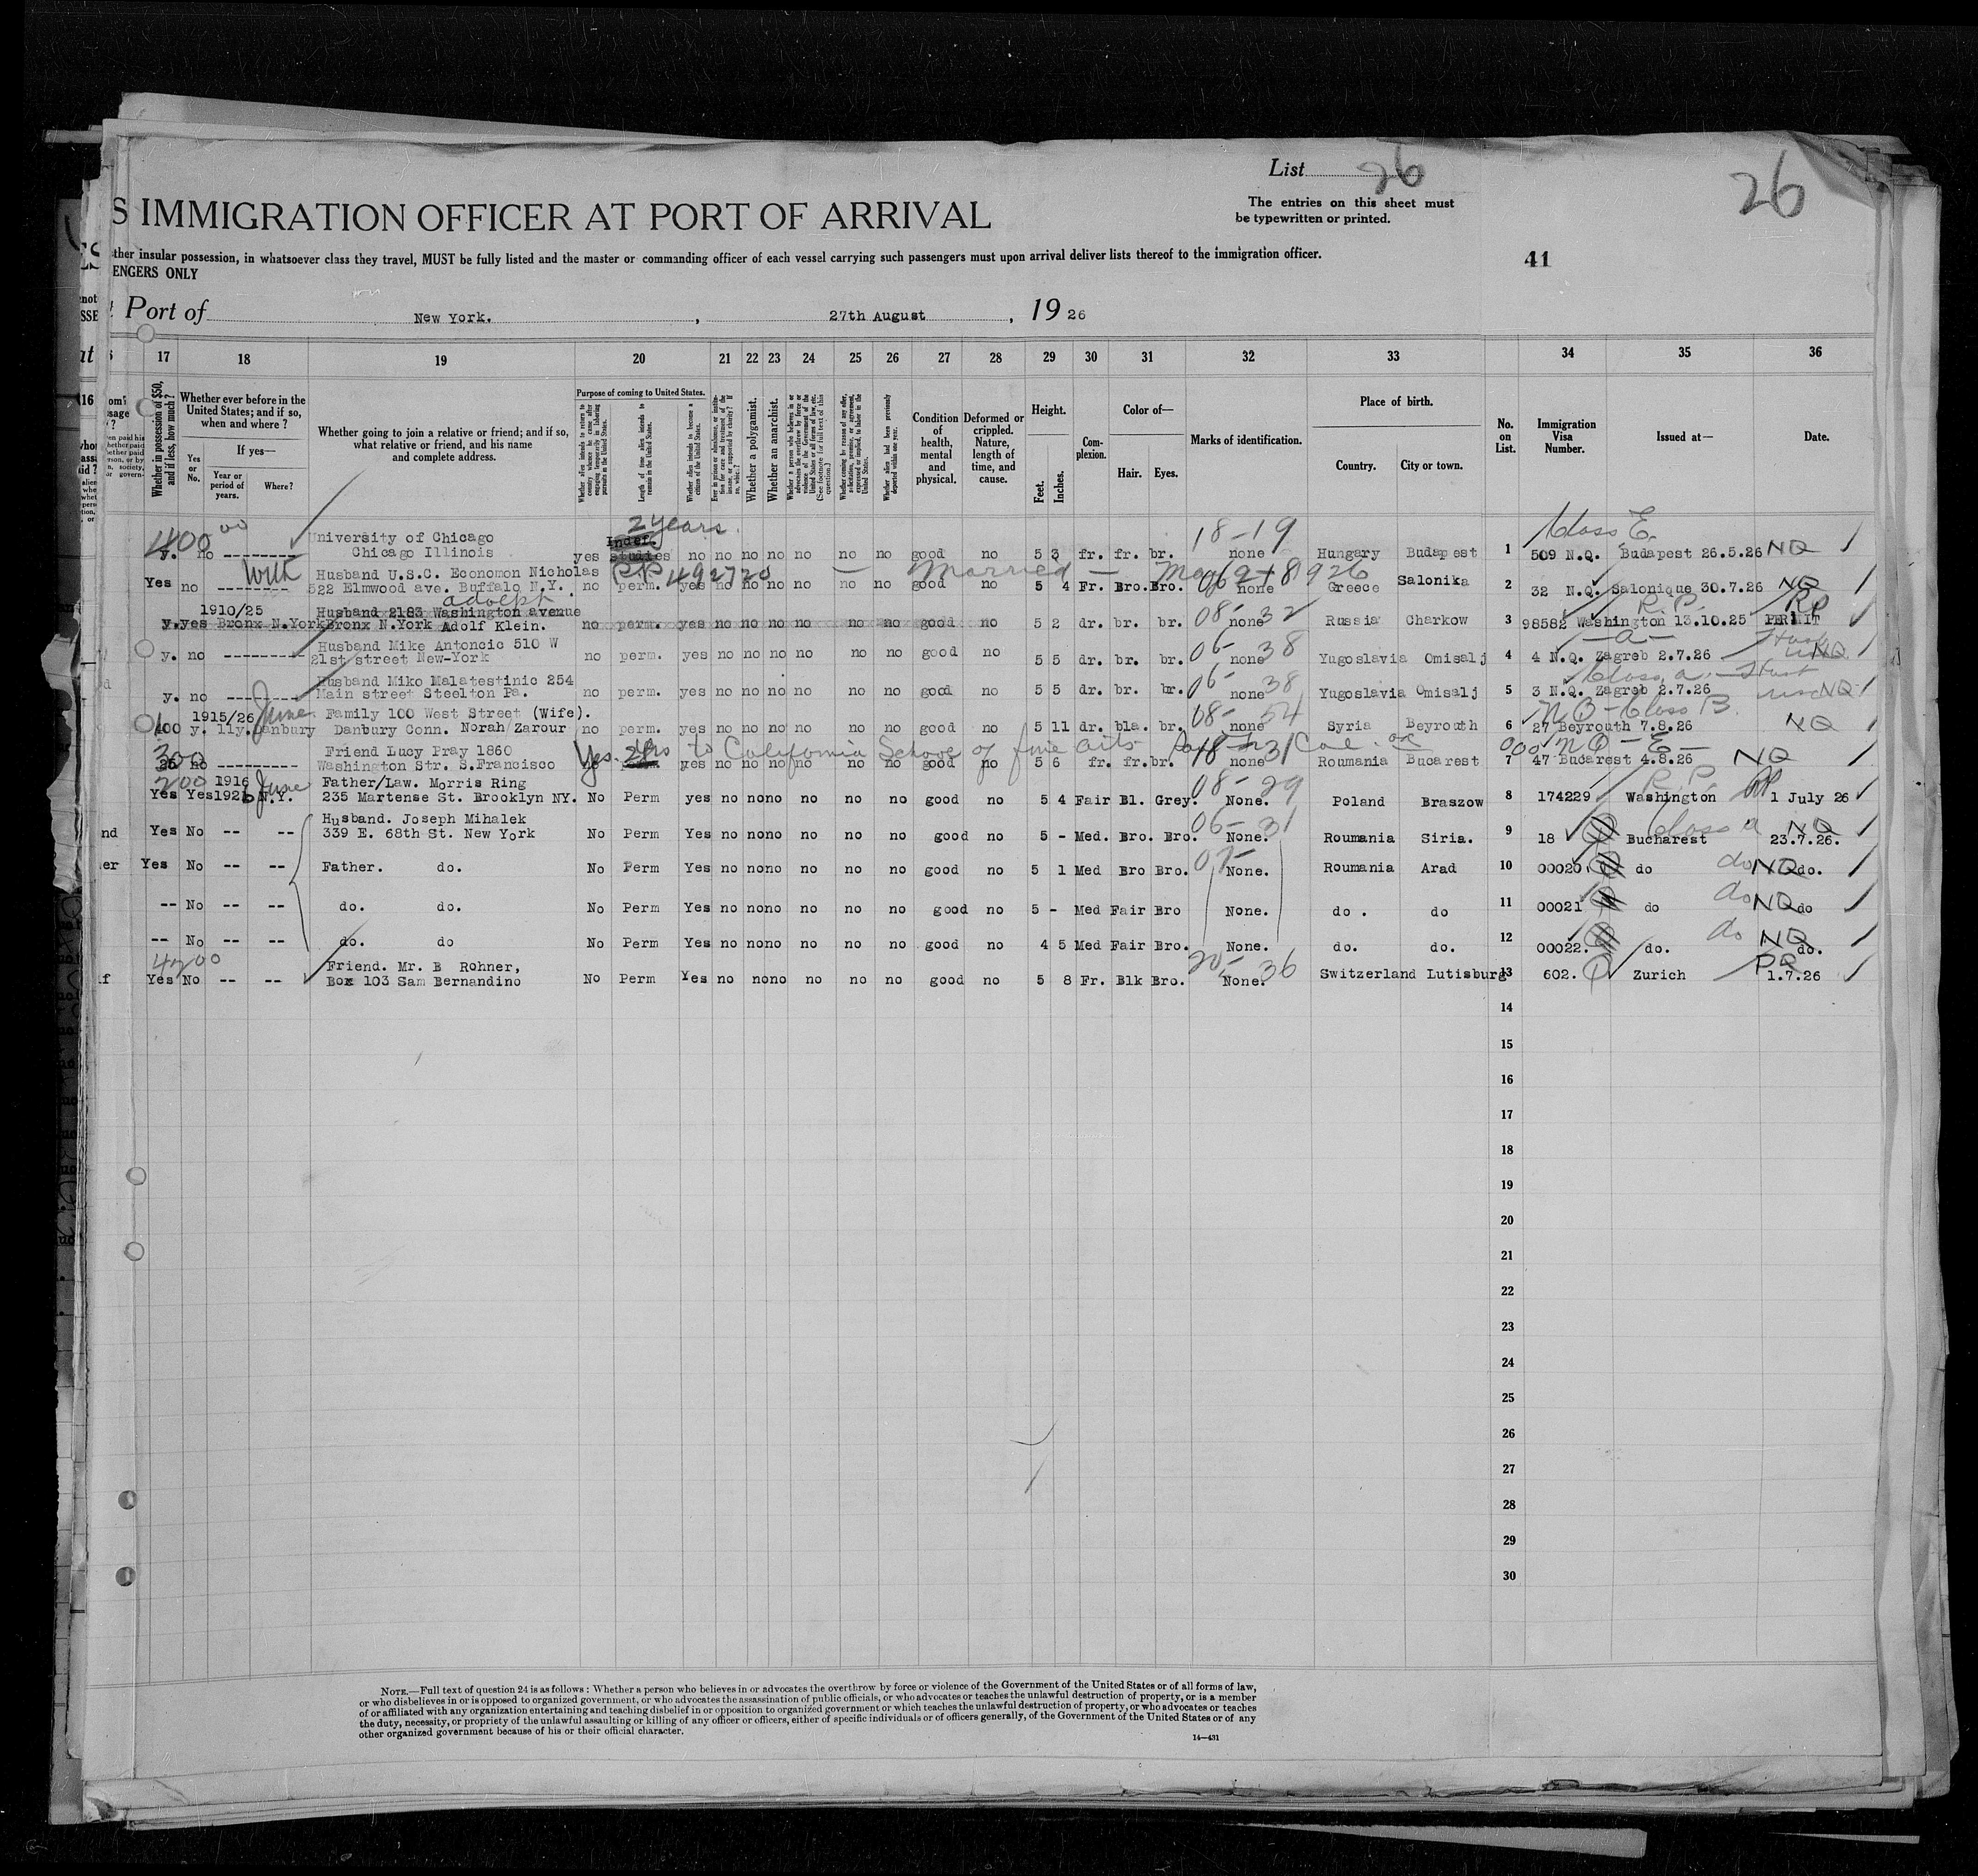 List 26
26
The entries on this sheet must
be typewritten or printed.
S IMMIGRATION OFFICER AT PORT OF ARRIVAL
ther insular possession, in whatsoever class they travel, MUST be fully listed and the master or commanding officer of each vessel carrying such passengers must upon arrival deliver lists thereof to the immigration officer.
ENGERS ONLY
41
Port of New York. , 27th August , 19 26
17 18 19 20 21 22 23 24 25 26 27 28 29 30 31 32 33 34 35 36
Whether in possession of $50, and if less, how much?
Whether ever before in the United States; and if so, when and where?
If yes—
Yes or No.
Year or period of years.
Where?
Whether going to join a relative or friend; and if so, what relative or friend, and his name and complete address.
Purpose of coming to United States.
Whether alien intends to return to country whence he came after engaging temporarily in laboring pursuits in the United States.
Length of time alien intends to remain in the United States.
Whether alien intends to become a citizen of the United States.
Ever in prison or almshouse, or institution for care and treatment of the insane, or supported by charity? If so, which?
Whether a polygamist.
Whether an anarchist.
Condition of health, mental and physical.
Deformed or crippled. Nature, length of time, and cause.
Height.
Feet. Inches.
Complexion.
Color of—
Hair. Eyes.
Marks of identification.
Place of birth.
Country. City or town.
No. on List.
Immigration Visa Number.
Issued at—
Date.
400 00 2 years. 18-19 Class E.
University of Chicago Indef.
y. no --------- Chicago Illinois yes studies no no no no no no no good no 5 3 fr. fr. br. none Hungary Budapest 1 509 N.Q. Budapest 26.5.26 NQ
With Husband U.S.C. Economon Nicholas P.P. 492720 — Married — 1926
Yes no --------- 522 Elmwood ave. Buffalo N.Y. no perm. yes no no no no no no good no 5 4 Fr. Bro. Bro. none Greece Salonika 2 32 N.Q. Salonique 30.7.26 NQ
adolph
1910/25 Husband 2183 Washington avenue 08-32 R.P. RP
y. yes Bronx N.York Bronx N.York Adolf Klein. no perm. yes no no no no no no good no 5 2 dr. br. br. none Russia Charkow 3 98582 Washington 13.10.25 PERMIT
Husband Mike Antoncic 510 W 06-38 -a-
y. no --------- 21st street New-York no perm. yes no no no no no no good no 5 5 dr. br. br. none Yugoslavia Omisalj 4 4 N.Q. Zagreb 2.7.26 NQ
Husband Miko Malatestinic 254 06-38 Class a.
y. no --------- Main street Steelton Pa. no perm. yes no no no no no no good no 5 5 dr. br. br. none Yugoslavia Omisalj 5 3 N.Q. Zagreb 2.7.26 NQ
1915/26 June Family 100 West Street (Wife). 08-54 NQ-Class B.
100 y. 11y. Danbury Danbury Conn. Norah Zarour no perm. yes no no no no no no good no 5 11 dr. bla. br. none Syria Beyrouth 6 27 Beyrouth 7.8.26 NQ
300 Friend Lucy Pray 1860 Yes. 2 yrs to California School of fine arts Cal. 18-31 NQ-E-
no --------- Washington Str. S.Francisco no perm. yes no no no no no no good no 5 6 fr. fr. br. none Roumania Bucarest 7 47 Bucarest 4.8.26 NQ
200 1916 June Father/Law. Morris Ring 08-29 R.P.
Yes Yes 1926 N.Y. 235 Martense St. Brooklyn NY. No Perm yes no no no no no no good no 5 4 Fair Bl. Grey. None. Poland Braszow 8 174229 Washington 1 July 26
Husband. Joseph Mihalek 06-31 Class a NQ
nd Yes No -- -- 339 E. 68th St. New York No Perm Yes no no no no no no good no 5 - Med. Bro. Bro. None. Roumania Siria. 9 18 Bucharest 23.7.26.
er Yes No -- -- Father. do. No Perm Yes no no no no no no good no 5 1 Med Bro Bro. None. Roumania Arad 10 00020. do do NQ do.
-- No -- -- do. do. No Perm Yes no no no no no no good no 5 - Med Fair Bro None. do. do 11 00021 do do NQ do
-- No -- -- do. do No Perm Yes no no no no no no good no 4 5 Med Fair Bro. None. do. do. 12 00022. do. do NQ do.
Friend. Mr. B Rohner, 36 PQ
lf Yes No -- -- Box 103 Sam Bernandino No Perm Yes no no no no no no good no 5 8 Fr. Blk Bro. None. Switzerland Lutisburg 13 602. Zurich 1.7.26
14
15
16
17
18
19
20
21
22
23
24
25
26
27
28
29
30
NOTE.—Full text of question 24 is as follows: Whether a person who believes in or advocates the overthrow by force or violence of the Government of the United States or of all forms of law,
or who disbelieves in or is opposed to organized government, or who advocates the assassination of public officials, or who advocates or teaches the unlawful destruction of property, or is a member
of or affiliated with any organization entertaining and teaching disbelief in or opposition to organized government or which teaches the unlawful destruction of property, or who advocates or teaches
the duty, necessity, or propriety of the unlawful assaulting or killing of any officer or officers, either of specific individuals or of officers generally, of the Government of the United States or of any
other organized government because of his or their official character.
14—431